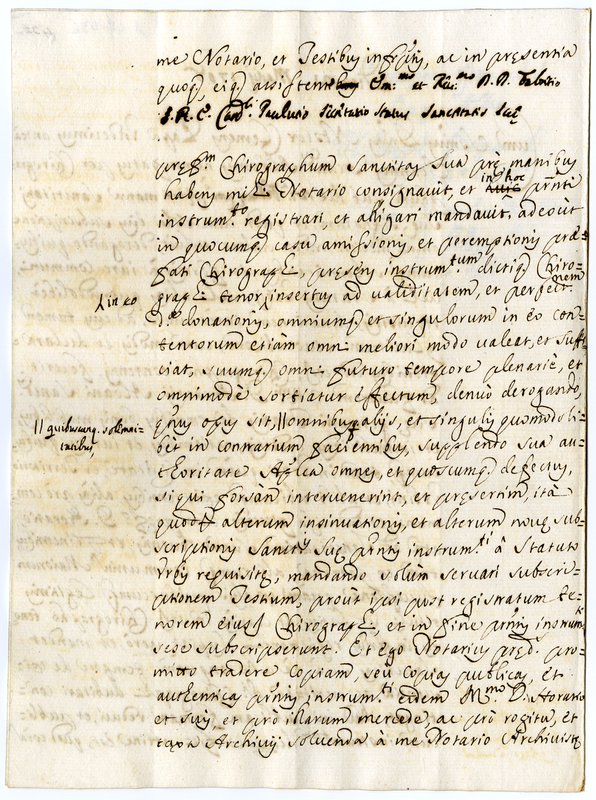 me Notario, et Testibus infrptis, ac in presentia
quoq, eiq, assistentibus Em:mo et Rev:mo D. D. Fabritio
S. R. E. Card: Paulutio Secretario Status Sanctitatis Suę
pręfm Chirographum Sanctitas Sua prę manibus
habens mihi Notario consignavit, et in hoc prnti
instrumto registrari, et alligari mandavit, adeout
in quocumq casu amissionis, et peremptionis prę=
fati Chirographi, presens instrumtum dictiq Chiro=
graphi tenor insertus ad validitatem, et perfectnem
λ in eo
dę donationis λ omniumq et singulorum in eo con=
tentorum etiam omni meliori modo valeat, et suffi
ciat, suumq omni futuro tempore plenariè, et
omnimodè sortiatur effectum, denuò derogando,
|| quibuscunq solemni=
tatibus
qtnus opus sit, || omnibus alijs, et singulis quomodoli=
bèt in contrarium facientibus, supplendo sua au=
thoritate Aplica omnes, et quoscumq defectus,
siqui forsan intervenerint, et presertim, ità
quod alterum insinuationis, et alterum novę sub=
scriptionis Sanctis Suę prntis instrumti à Statuto
Urbis requisitę, mandando solum servari subscri=
ptionem Testium, prout ipsi post registratum te=
norem eiusd Chirographi, et in fine prntis instrumti
sese subscripserunt. Et ego Notarius pręd. pro=
mitto tradere copiam, seu copias publicas, et
authenticas prntis instrumti eidem Illmo D. Horatio
et suis, et prò illarum mercede, ac prò rogitu, et
taxa Archivij solvenda à me Notario Archivistę